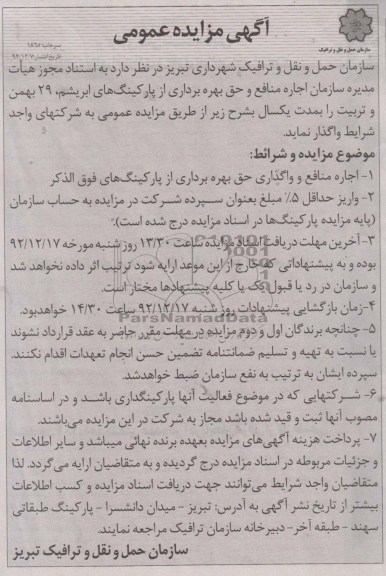 آگهی مزایده عمومی
سازمان حمل و نقل و ترافیک
سازمان حمل و نقل و ترافیک شهرداری تبریز در نظر دارد به استناد مجوز هیأت
مدیره سازمان اجاره منافع و حق بهره برداری از پارکینگ‌های ابریشم، ۲۹ بهمن
و تربیت را بمدت یکسال بشرح زیر از طریق مزایده عمومی به شرکتهای واجد
شرایط واگذار نماید.
موضوع مزایده و شرائط:
۱- اجاره منافع و واگذاری حق بهره برداری از پارکینگ‌های فوق الذکر
۲- واریز حداقل ۵٪ مبلغ بعنوان سپرده شرکت در مزایده به حساب سازمان
(پایه مزایده پارکینگ‌ها در اسناد مزایده درج شده است).
۳- آخرین مهلت دریافت اسناد مزایده ساعت ۱۳/۳۰ روز شنبه مورخه ۹۲/۱۲/۱۷
بوده و به پیشنهاداتی که خارج از این موعد ارایه شود ترتیب اثر داده نخواهد شد
و سازمان در رد یا قبول یک یا کلیه پیشنهادها مختار است.
۴- زمان بازگشایی پیشنهادات روز شنبه ۹۲/۱۲/۱۷ ساعت ۱۴/۳۰ خواهدبود.
ParsNamadData
۵- چنانچه برندگان اول و دوم مزایده در مهلت مقرر حاضر به عقد قرارداد نشوند
یا نسبت به تهیه و تسلیم ضمانتنامه تضمین حسن انجام تعهدات اقدام نکنند.
سپرده ایشان به ترتیب به نفع سازمان ضبط خواهدشد.
۶- شرکتهایی که در موضوع فعالیت آنها پارکینگداری باشد و در اساسنامه
مصوب آنها ثبت و قید شده باشد مجاز به شرکت در این مزایده می‌باشند.
۷- پرداخت هزینه آگهی‌های مزایده بعهده برنده نهائی میباشد و سایر اطلاعات
و جزئیات مربوطه در اسناد مزایده درج گردیده و به متقاضیان ارایه می‌گردد. لذا
متقاضیان واجد شرایط می‌توانند جهت دریافت اسناد مزایده و کسب اطلاعات
بیشتر از تاریخ نشر آگهی به آدرس: تبریز - میدان دانشسرا - پارکینگ طبقاتی
سهند - طبقه آخر- دبیرخانه سازمان ترافیک مراجعه نمایند.
سازمان حمل و نقل و ترافیک تبریز